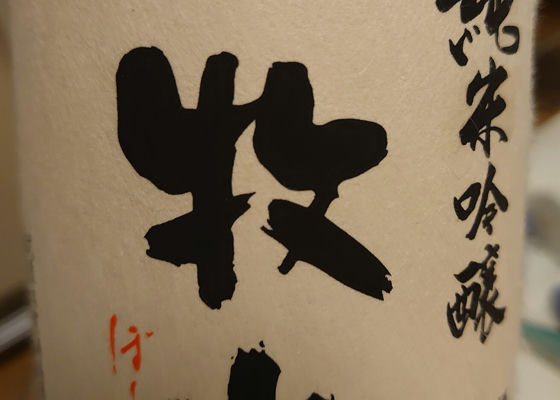 純米吟醸
牧
ぼ